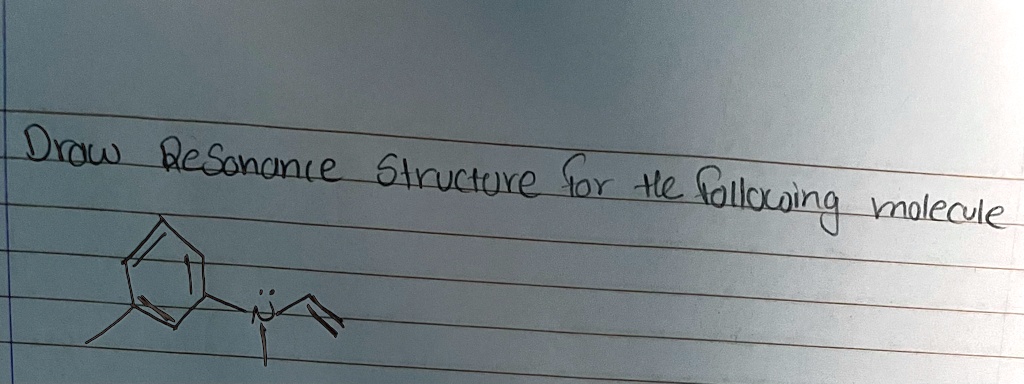 Draw Resonance Structure for the following molecule
N̈